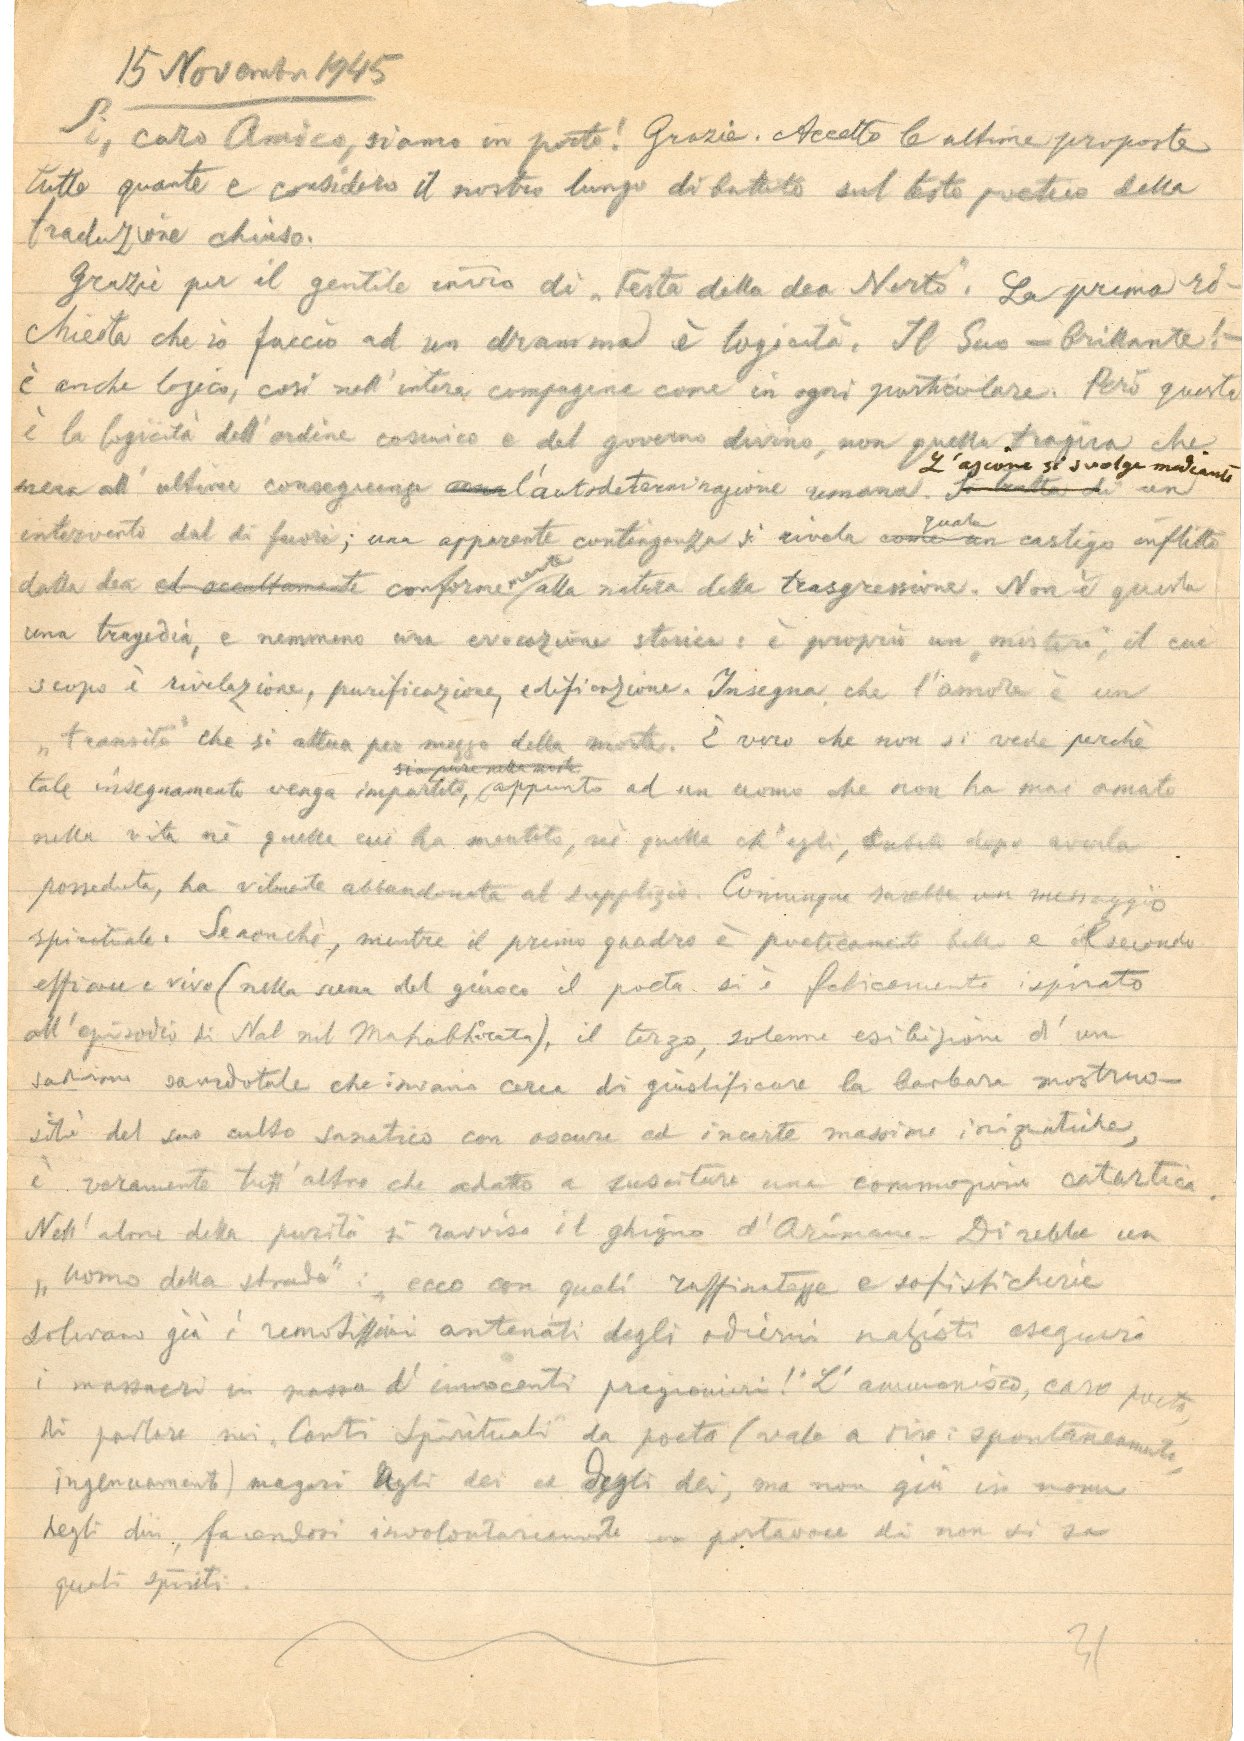 15 Novembre 1945
Sì, caro Amico, siamo in porto! Grazie. Accetto le ultime proposte
tutte quante e considero il nostro lungo dibattito sul testo poetico della
traduzione chiuso.
Grazie per il gentile invio di „Festa della dea Nerto". La prima ri-
chiesta che io faccio ad un dramma è logicità. Il Suo – brillante! –
è anche logico, così nell'intera compagine come in ogni particolare. Però questa
è la logicità dell'ordine cosmico e del governo divino, non quella tragica che
L'azione si svolge mediante
mena all'ultime conseguenze l'autodeterminazione umana. Si tratta di un
quale
intervento dal di fuori; una apparente contingenza si rivela come un castigo inflitto
dalla dea ed occultamente conformemente alla natura della trasgressione. Non è questa
una tragedia, e nemmeno una evocazione storica: è proprio un „mistero", il cui
scopo è rivelazione, purificazione, edificazione. Insegna che l'amore è un
„transito" che si attua per mezzo della morte. È vero che non si vede perchè
sia pure nella morte
tale insegnamento venga impartito, appunto ad un uomo che non ha mai amato
nella vita nè quella cui ha mentito, nè quella ch'egli, subito dopo averla
posseduta, ha vilmente abbandonata al supplizio. Comunque sarebbe un messaggio
spirituale. Senonchè, mentre il primo quadro è poeticamente bello e il secondo
efficace e vivo (nella scena del giuoco il poeta si è felicemente ispirato
all'episodio di Nal nel Mahabhârata), il terzo, solenne esibizione d'un
sadismo sacerdotale che invano cerca di giustificare la barbara mostruo-
sità del suo culto fanatico con oscure ed incerte massime
è veramente tutt'altro che adatto a suscitare una commozione catartica.
Nell'alone della purità si ravvisa il ghigno d'Arimane. Direbbe un
„uomo della strada": „ecco con quali raffinatezze e sofisticherie
solevano già i remotissimi antenati degli odierni nazisti eseguire
i massacri in massa d'innocenti prigionieri!" L'ammonisco, caro poeta,
di parlare nei „Canti Spirituali" da poeta (vale a dire: spontaneamente,
ingenuamente) magari agli dei ed degli dei, ma non già in nome
degli dei, facendosi involontariamente un portavoce di non si sa
quali spiriti.